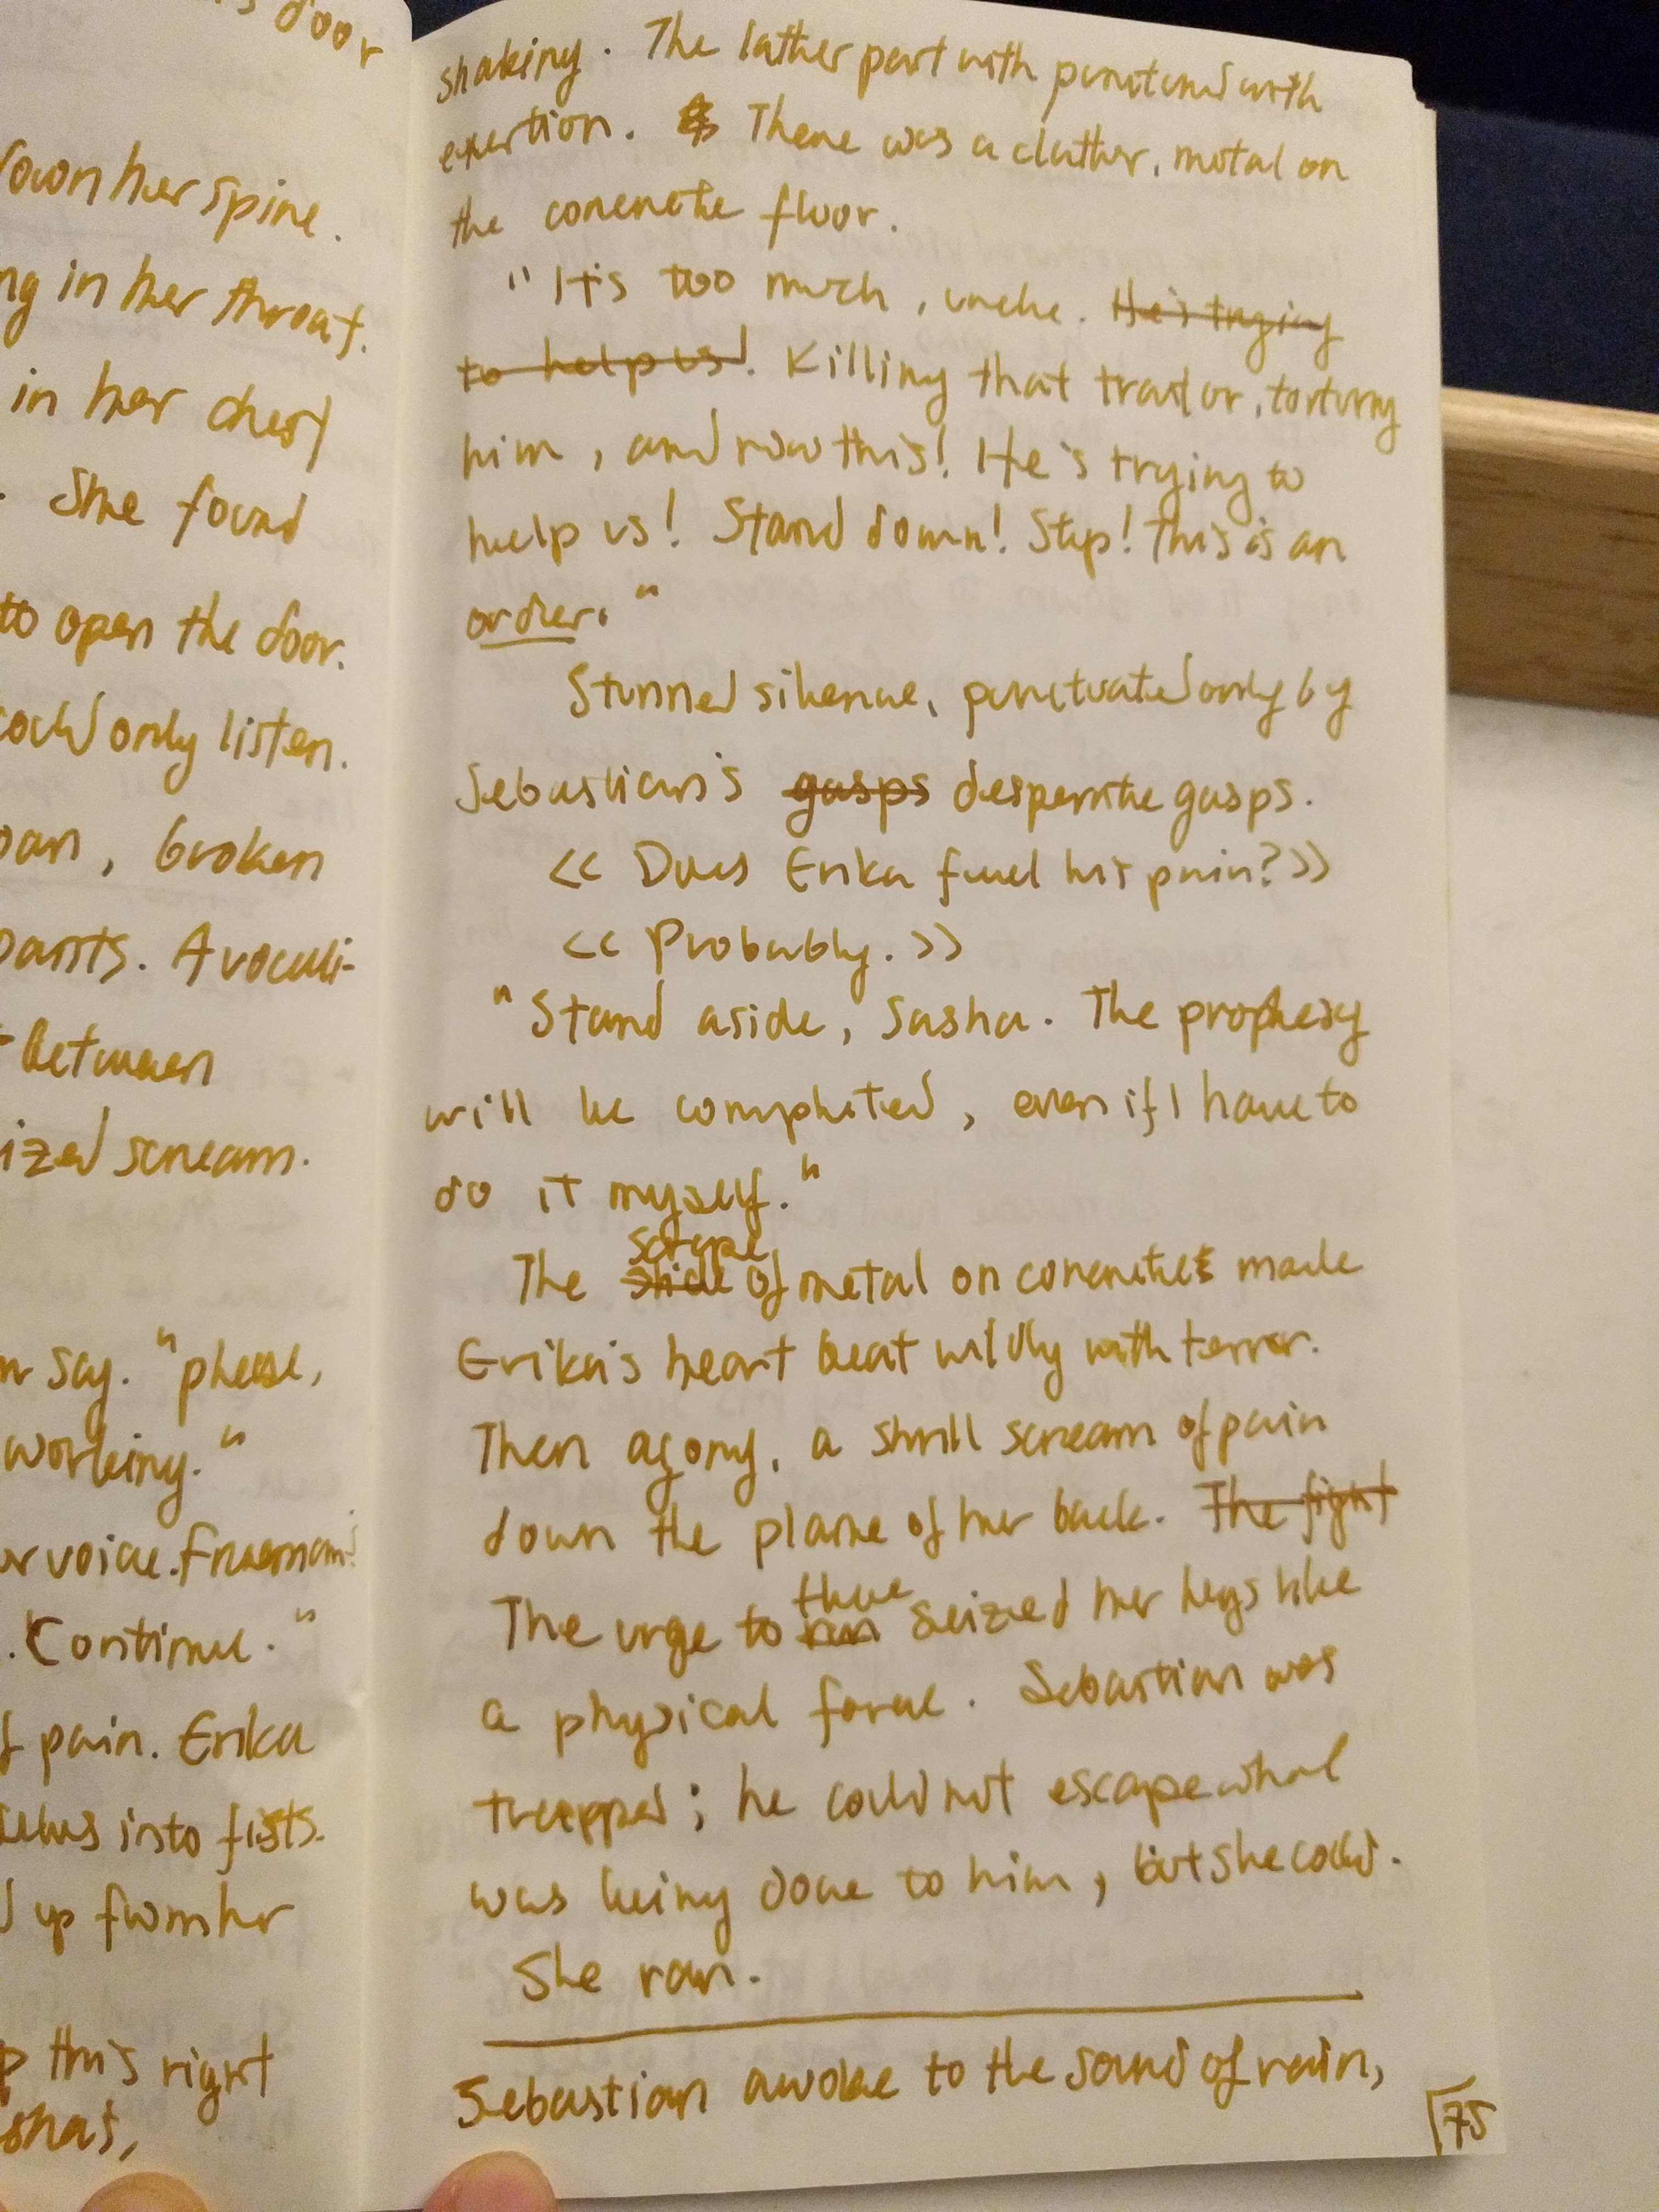 s door
down her spine.
ng in her throat.
in her chest
. She found
to open the door.
could only listen.
oan, broken
pants. A vocali-
t between
ized scream.
n say. "please,
working."
or voice. Freeman
. Continue."
f pain. Erika
into fists.
d up from her
p this right
shaking. The lather part with with
exertion. There was a clather, metal on
the concrete floor.
"It's too much, uncle. He's trying
to help us! Killing that traitor, torturing
him, and now this! He's trying to
help us! Stand down! Stop! This is an
order."
Stunned silence, punctuated only by
Sebastian's gasps desperate gasps.
<< Does Erika feel his pain? >>
<< Probably. >>
"Stand aside, Sasha. The prophesy
will be completed, even if I have to
do it myself."
scrape
The slide of metal on concrete made
Erika's heart beat wildly with terror.
Then agony, a shrill scream of pain
down the plane of her back. The fight
thee
The urge to run seized her legs like
a physical force. Sebastian was
trapped; he could not escape what
was being done to him, but she could.
She ran.
Sebastian awoke to the sound of rain,
75